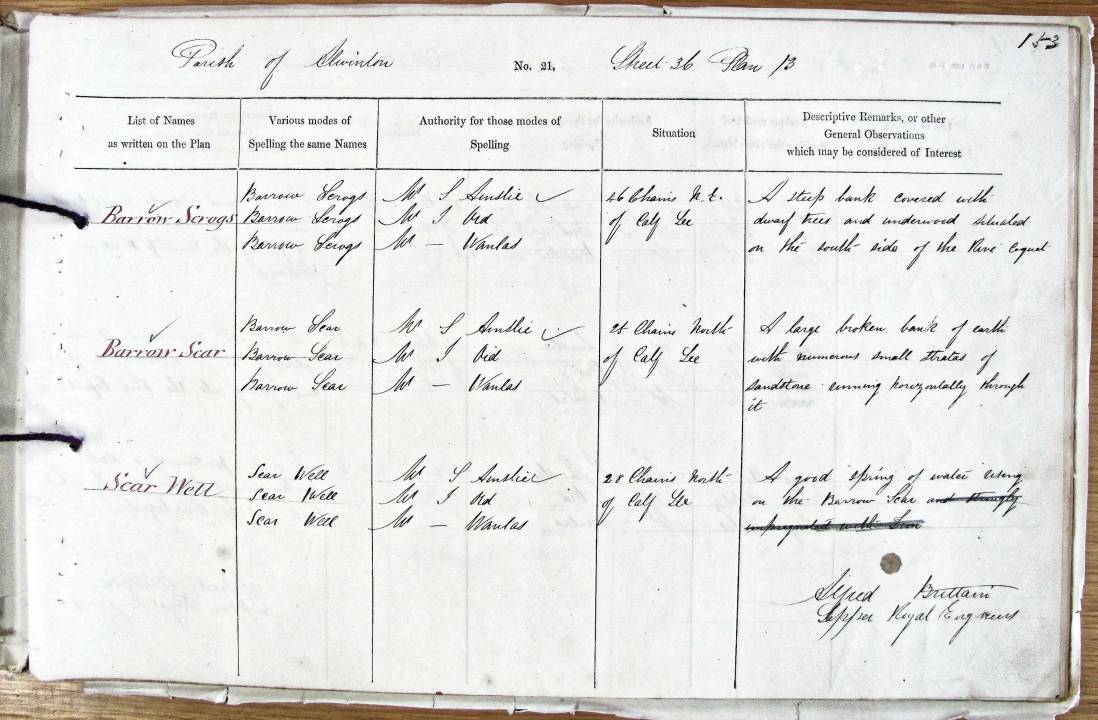 153
Parish of Alwinton No. 21, Sheet 36 Plan 13
List of Names
as written on the Plan
Various modes of
Spelling the same Names
Authority for those modes of
Spelling
Situation
Descriptive Remarks, or other
General Observations
which may be considered of Interest
Barrow Scrogs
Barrow Scrogs
Barrow Scrogs
Barrow Scrogs
Mr S Ainslie
Mr T
Mr — Wanlas
46 Chains N.E.
of Calf Lee
A steep bank covered with
dwarf trees and underwood situated
on the south side of the River Coquet
Barrow Scar
Barrow Scar
Barrow Scar
Barrow Scar
Mr S Ainslie
Mr T
Mr — Wanlas
25 Chains North
of Calf Lee
A large broken bank of earth
with numerous small stratas of
sandstone running horizontally through
it
Scar Well
Scar Well
Scar Well
Scar Well
Mr S Ainslie
Mr T
Mr — Wanlas
28 Chains North
of Calf Lee
A good spring of water rising
on the Barrow Scar and strongly
impregnated with Iron
Alfred Brittain
Sapper Royal Engineers